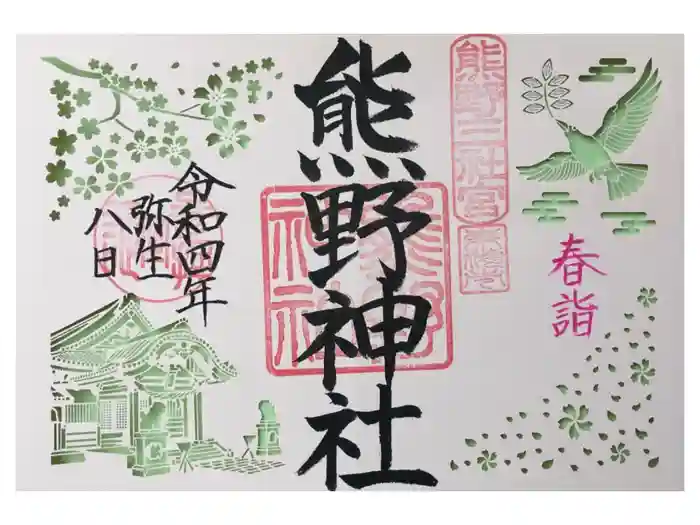 春詣
熊野三社宮
熊野神社
熊野
神社
令和四年
弥生
八日